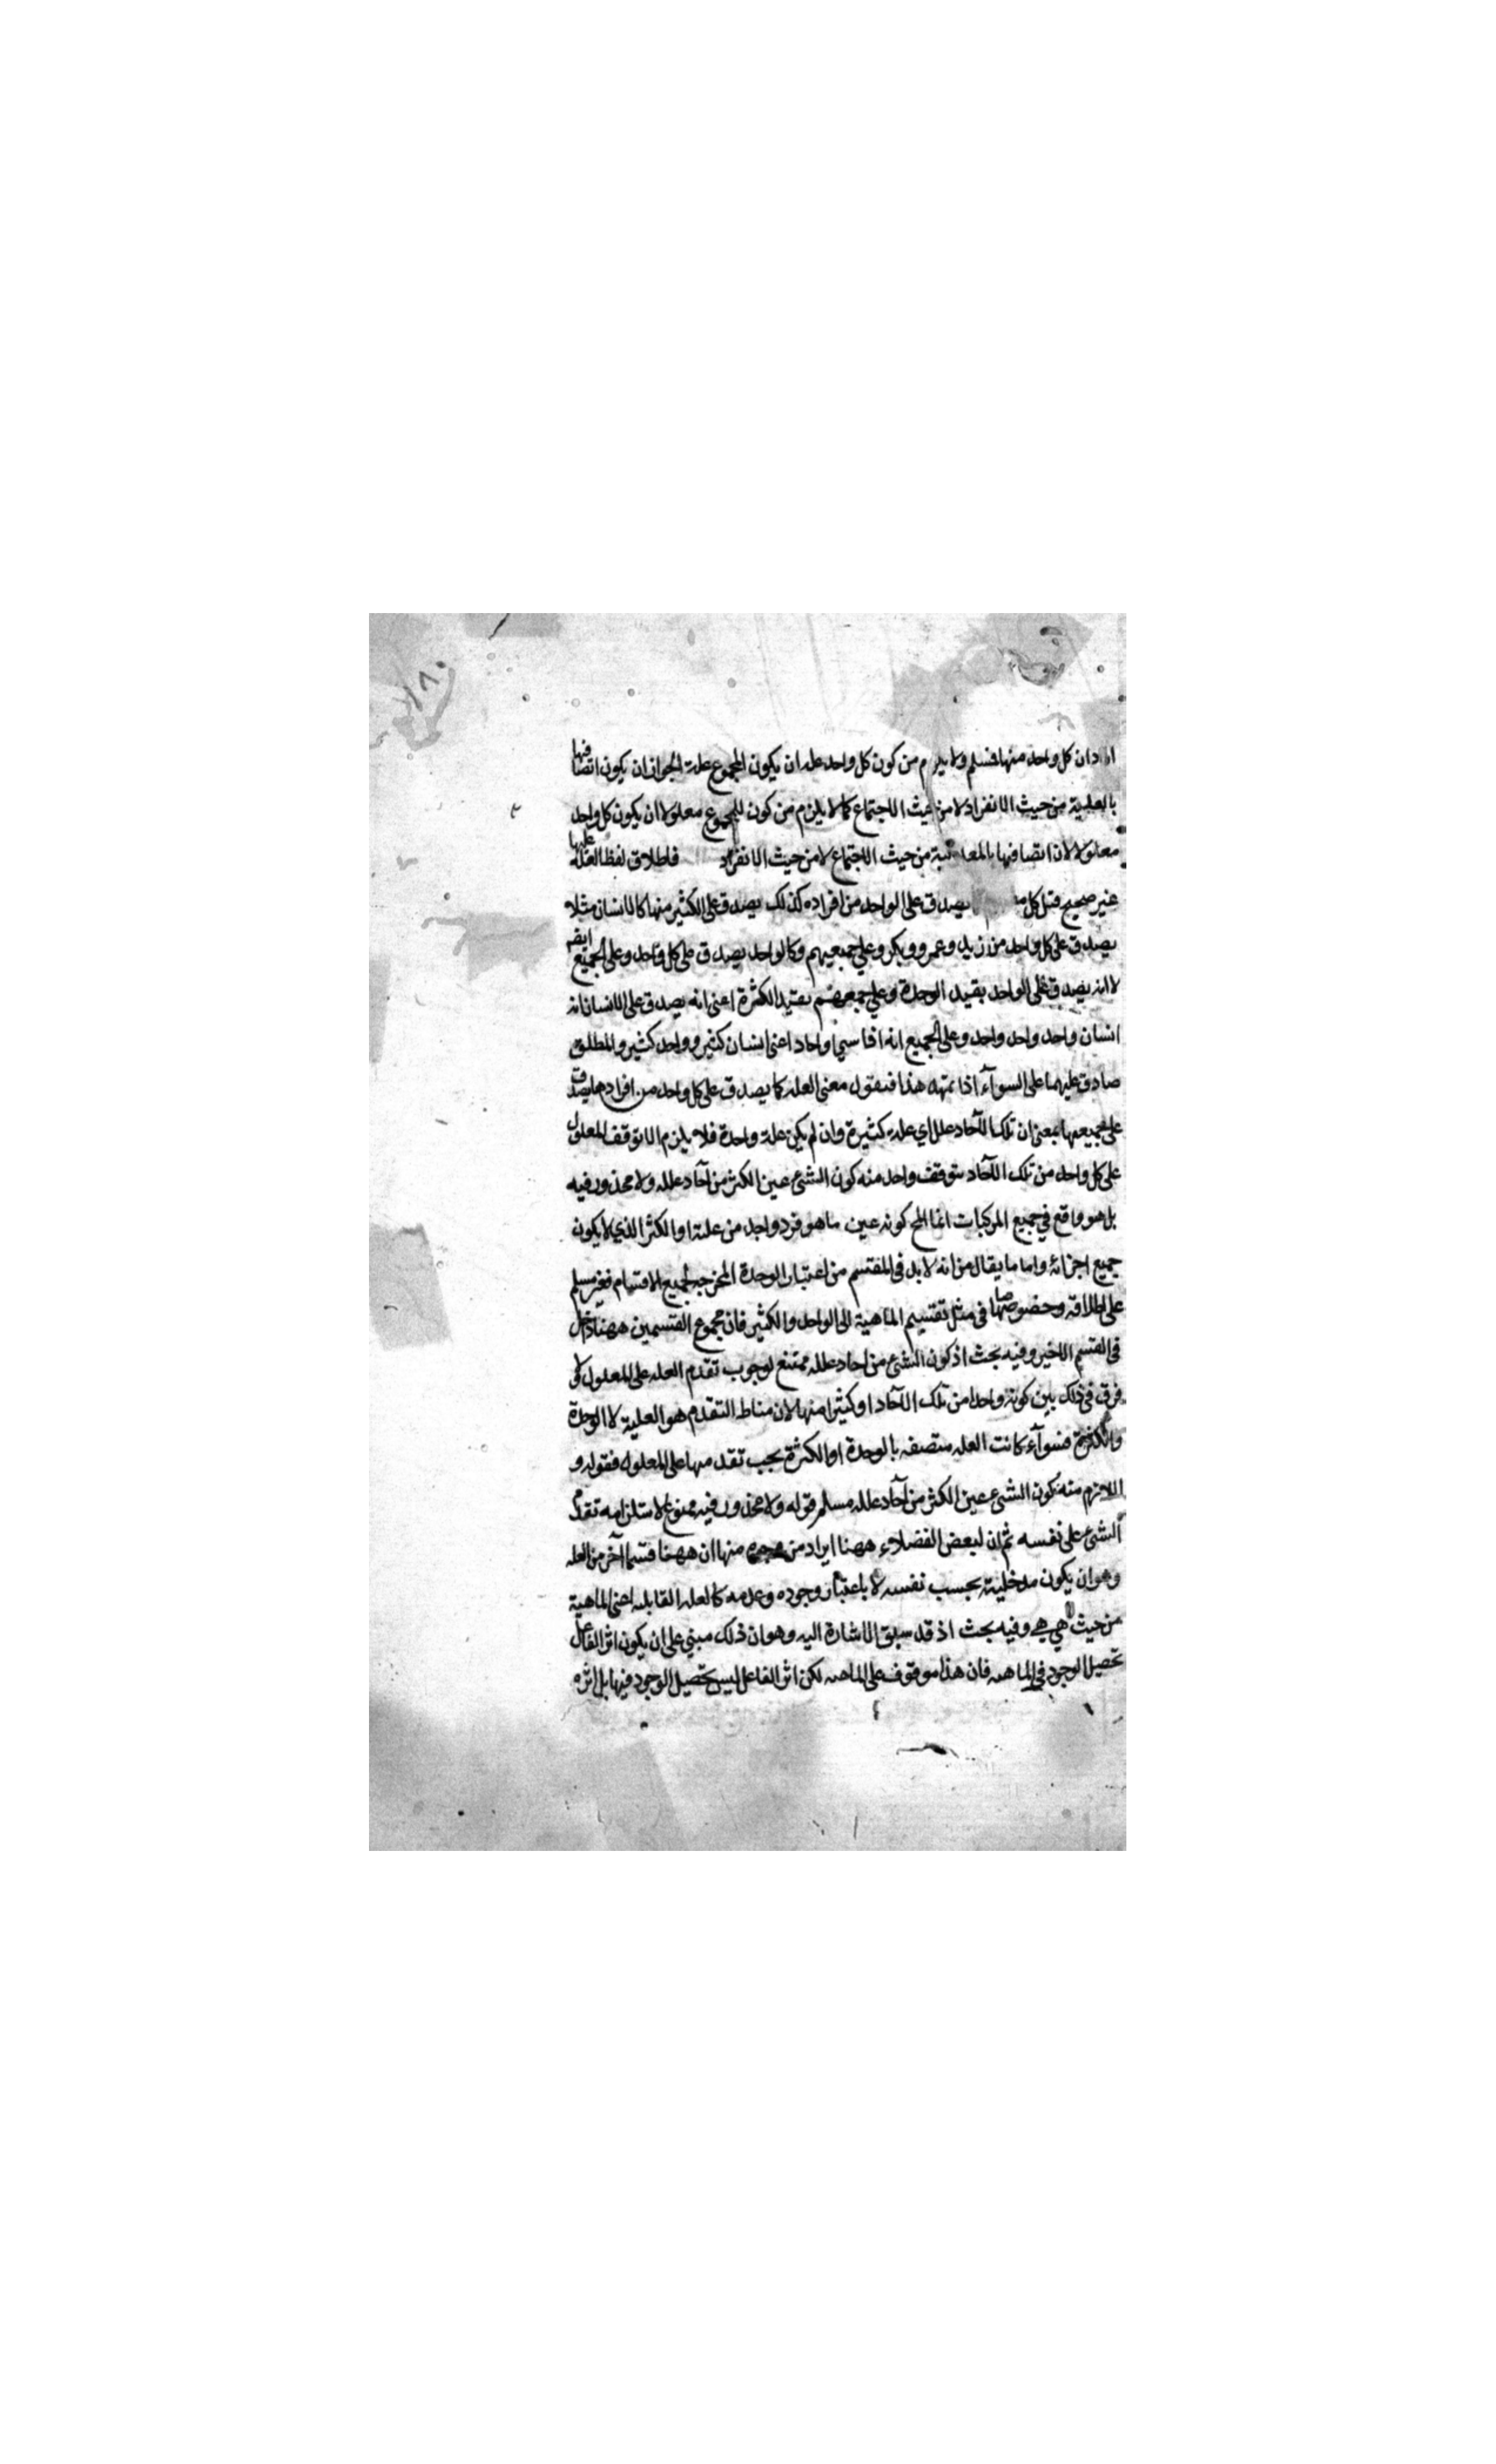 ١٨٠
اراد ان كل واحد منها فسلم ولا يلزم من كون كل واحد علة ان يكون المجموع علة لجواز ان يكون اتصافها
بالعلية من حيث الانفراد لا من حيث الاجتماع كما لا يلزم من كون المجموع معلولا ان يكون كل واحد
معلولا لان اتصافها بالمعلولية من حيث الاجتماع لا من حيث الانفراد فاطلاق لفظ العلة عليها
غير صحيح قيل كل يصدق على الواحد من افراده كذلك يصدق على الكثير منها كالانسان مثلا
يصدق على كل واحد من زيد وعمرو وبكر وعلى جميعهم وكالواحد يصدق على كل واحد وعلى الجميع ايضا
لا انه يصدق على الواحد بقيد الوحدة وعلى جميعهم بقيد الكثرة اعنى انه يصدق على الانسان انه
انسان واحد واحد واحد وعلى الجميع انه اناسي واحاد اعنى انسان كثير وواحد كثير والمطلق
صادق عليهما على السوآء اذا تمهد هذا فنقول معنى العله كما يصدق على كل واحد من افرادها يصدق
على جميعها بمعنى ان تلك الآحاد علل اي علة كثيرة وان لم يكن علة واحدة فلا يلزم الا توقف المعلول
على كل واحد من تلك الآحاد بتوقف واحد منه كون الشئ عين الكثر من آحاد علله ولا محذور فيه
بل هو واقع في جميع المركبات انما المح كونه عين ما هو فرد واحد من علته او الكثر الذي لا يكون
جميع اجزائه واما ما يقال من انه لا بد فى المقسم من اعتبار الوحدة المخرجه لجميع الاقسام فغير مسلم
على اطلاقه وخصوصا فى مثل تقسيم الماهية الى الواحد والكثير فان مجموع القسمين ههنا داخل
فى القسم الاخير وفيه بحث اذ كون الشئ من احاد علله ممتنع لوجوب تقدم العله على المعلول لا
فرق فى ذلك بين كونه واحدا من تلك الآحاد او كثيرا منها لان مناط التقدم هو العلية لا الوحدة
والكثرة فسوآء كانت العله متصفه بالوحدة او الكثرة يجب تقدمها على المعلول فقوله و
اللازم منه كون الشئ عين الكثر من آحاد علله مسلم قوله ولا محذور فيه ممنوع لاستلزامه تقدم
الشئ على نفسه ثم ان لبعض الفضلاء ههنا ايراد من وجوه منها ان ههنا قسما آخر من العله
وهو ان يكون مدخليته بحسب نفسه لا باعتبار وجوده وعدمه كالعله القابله اعنى الماهية
من حيث هي هي وفيه بحث اذ قد سبق الاشارة اليه وهو ان ذلك مبني على ان يكون اثر الفاعل
تحصيل الوجود فى الماهيه فان هذا موقوف على الماهيه لكن اثر الفاعل ليس تحصيل الوجود فيها بل اثره